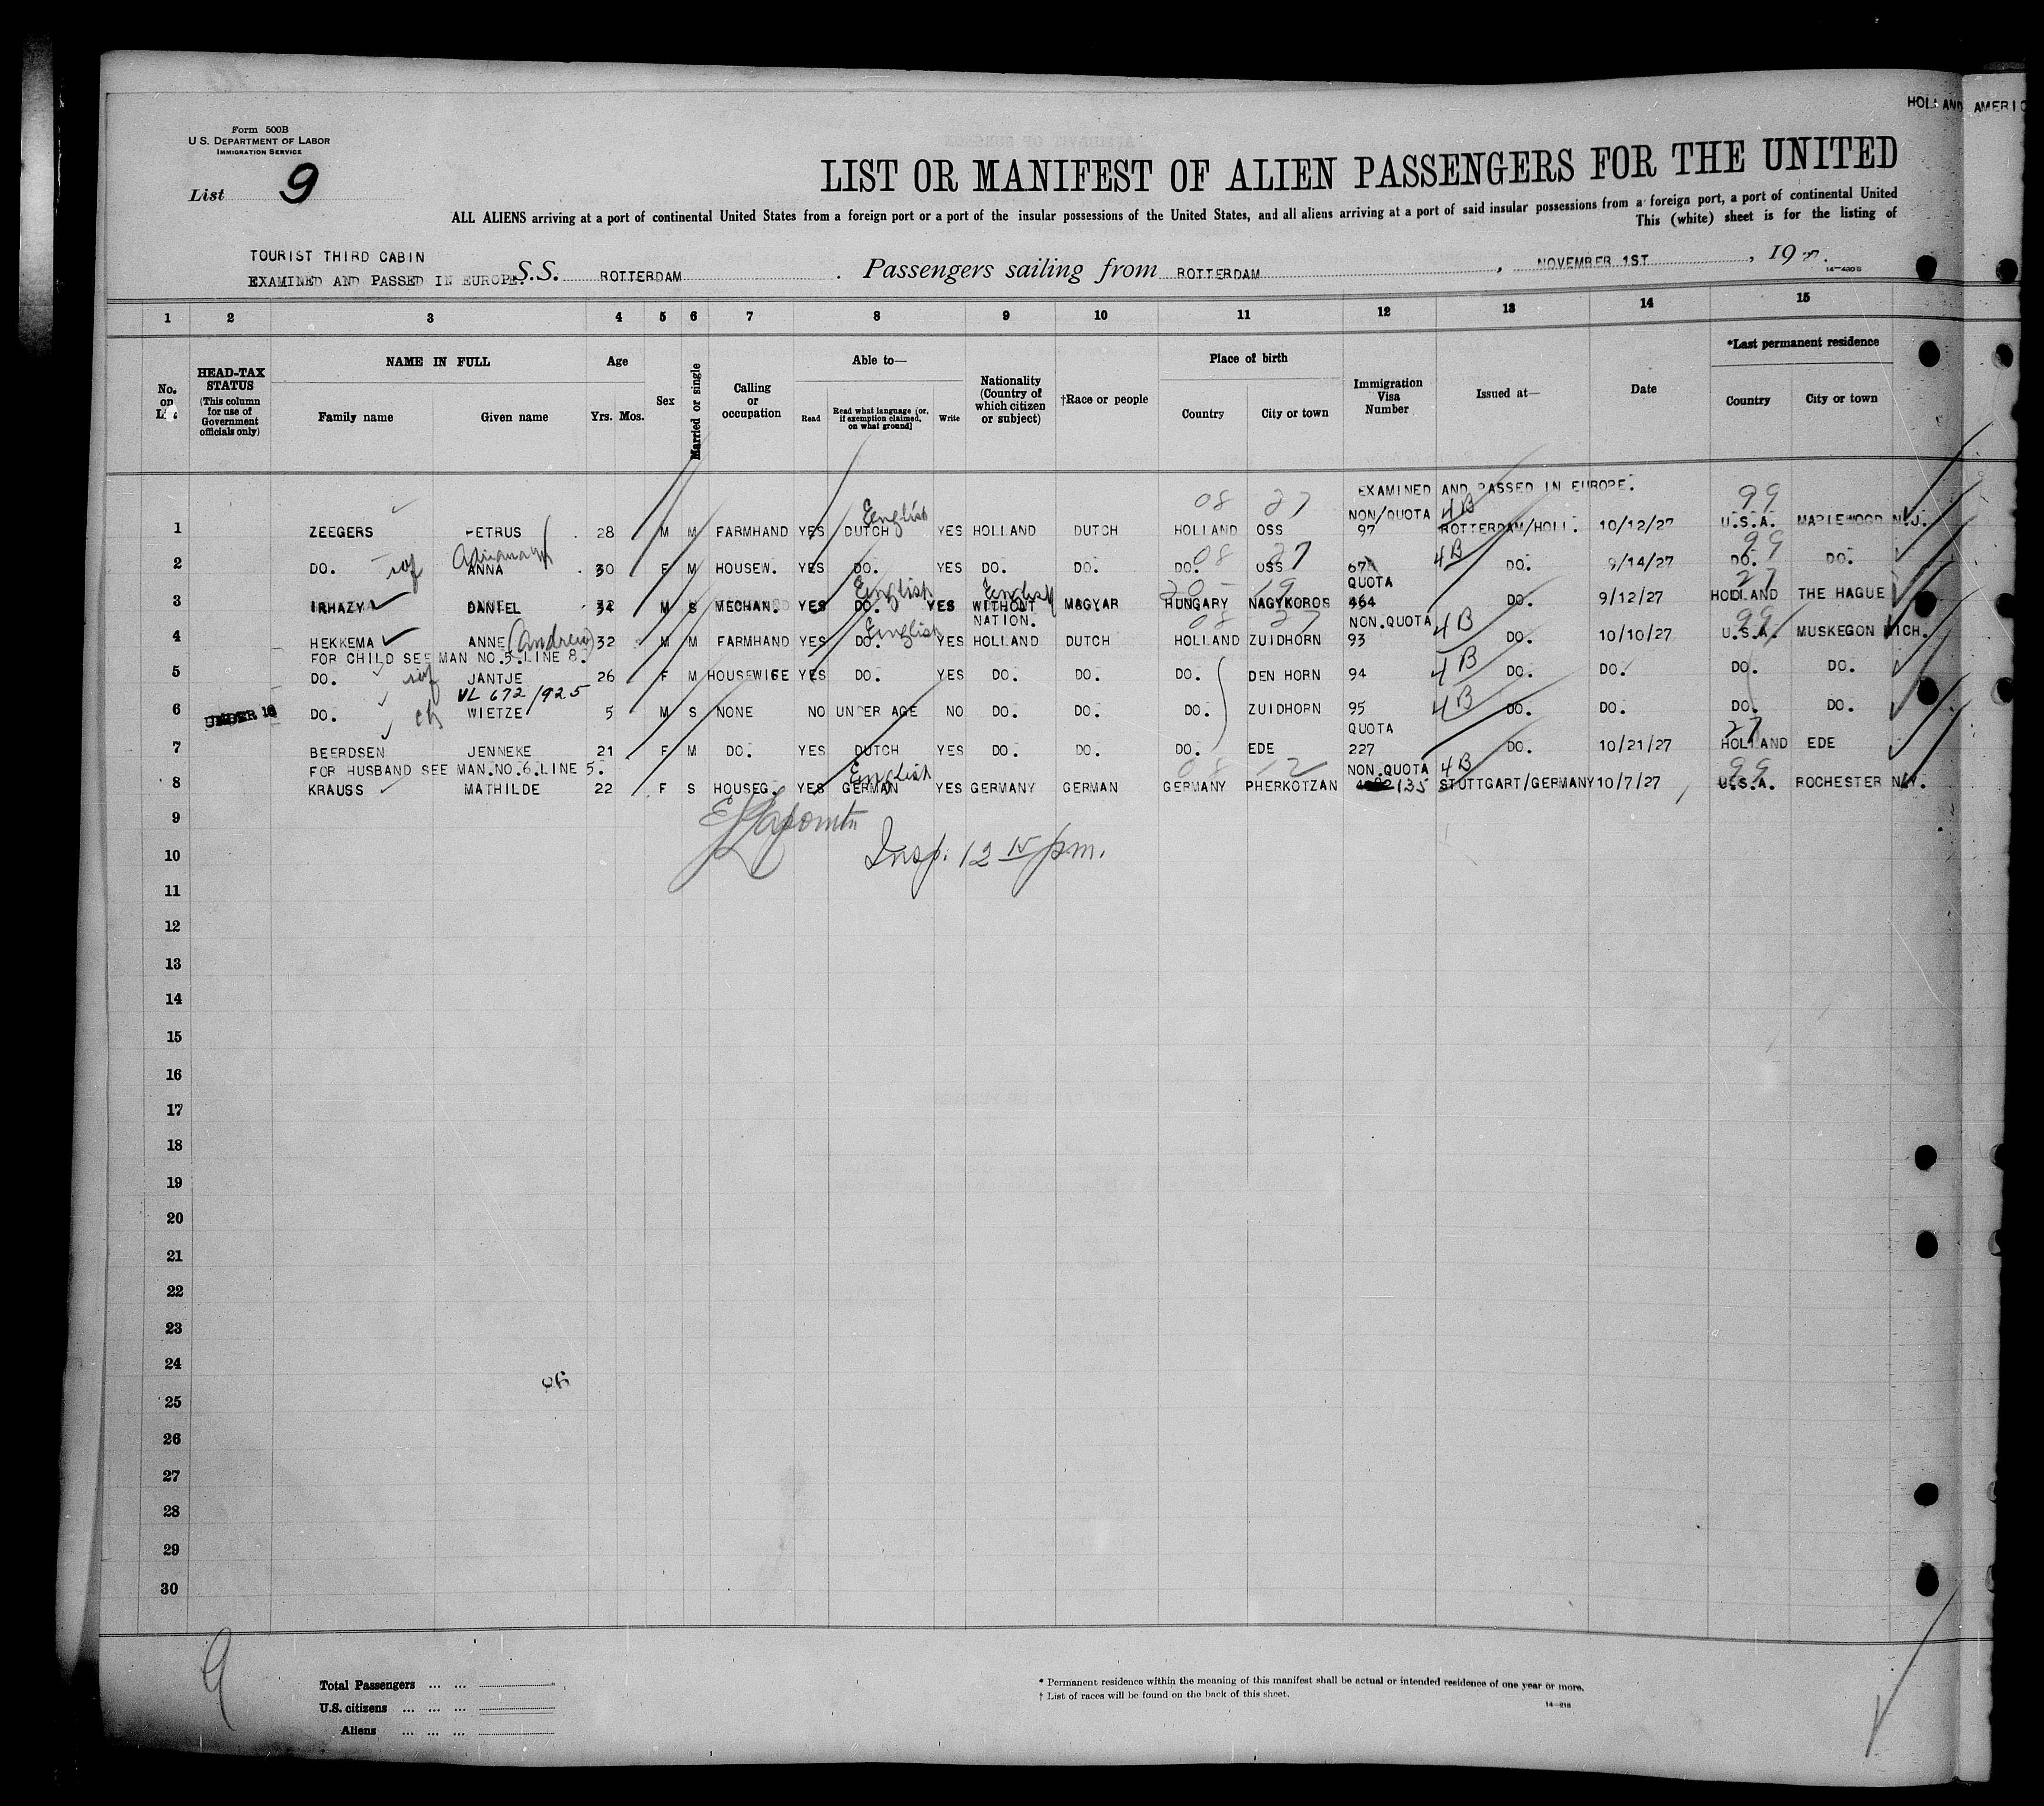 HOLLAND AMERIC
Form 500B
U.S. DEPARTMENT OF LABOR
IMMIGRATION SERVICE
List 9
LIST OR MANIFEST OF ALIEN PASSENGERS FOR THE UNITED
ALL ALIENS arriving at a port of continental United States from a foreign port or a port of the insular possessions of the United States, and all aliens arriving at a port of said insular possessions from a foreign port, a port of continental United
This (white) sheet is for the listing of
TOURIST THIRD CABIN
EXAMINED AND PASSED IN EUROPE. S.S. ROTTERDAM. Passengers sailing from ROTTERDAM, NOVEMBER 1ST, 19
14—430 B
1 2 3 4 5 6 7 8 9 10 11 12 13 14 15
No. on List
HEAD-TAX STATUS (This column for use of Government officials only)
NAME IN FULL
Family name Given name
Age
Yrs. Mos.
Sex
Married or single
Calling or occupation
Able to—
Read Read what language [or, if exemption claimed, on what ground] Write
Nationality (Country of which citizen or subject)
†Race or people
Place of birth
Country City or town
Immigration Visa Number
Issued at—
Date
*Last permanent residence
Country City or town
EXAMINED AND PASSED IN EUROPE.
English 08 27 NON/QUOTA 4B 99
1 ZEEGERS PETRUS 28 M M FARMHAND YES DUTCH YES HOLLAND DUTCH HOLLAND OSS 97 ROTTERDAM/HOLL. 10/12/27 U.S.A. MAPLEWOOD N.J.
08 27 4B 99
2 DO. ANNA 30 F M HOUSEW. YES DO. YES DO. DO. DO. OSS 67 DO. 9/14/27 DO. DO.
English English 19 QUOTA 27
3 IRHAZY DANIEL 34 M S MECHAN. YES DO. YES WITHOUT NATION. MAGYAR HUNGARY NAGYKOROS 464 DO. 9/12/27 HOLLAND THE HAGUE
English 08 27 NON.QUOTA 4B 99
4 HEKKEMA ANNE (Andrew) 32 M M FARMHAND YES DO. YES HOLLAND DUTCH HOLLAND ZUIDHORN 93 DO. 10/10/27 U.S.A. MUSKEGON MICH.
FOR CHILD SEE MAN NO.5.LINE 8.
5 DO. JANTJE 26 F M HOUSEWIFE YES DO. YES DO. DO. DO. DEN HORN 94 4B DO. DO. DO. DO.
VL 672/925
6 UNDER 16 DO. ch WIETZE 5 M S NONE NO UNDER AGE NO DO. DO. DO. ZUIDHORN 95 4B DO. DO. DO. DO.
QUOTA 27
7 BEERDSEN JENNEKE 21 F M DO. YES DUTCH YES DO. DO. DO. EDE 227 DO. 10/21/27 HOLLAND EDE
FOR HUSBAND SEE MAN.NO.6.LINE 5.
English 08 12 NON.QUOTA 4B 99
8 KRAUSS MATHILDE 22 F S HOUSEG. YES GERMAN YES GERMANY GERMAN GERMANY PHERKOTZAN 2135 STUTTGART/GERMANY 10/7/27 U.S.A. ROCHESTER N.Y.
9
10 Insp. 12 15 pm.
11
12
13
14
15
16
17
18
19
20
21
22
23
24
25
26
27
28
29
30
9
Total Passengers ... ...
U.S. citizens ... ... ...
Aliens ... ... ...
* Permanent residence within the meaning of this manifest shall be actual or intended residence of one year or more.
† List of races will be found on the back of this sheet.
14—218